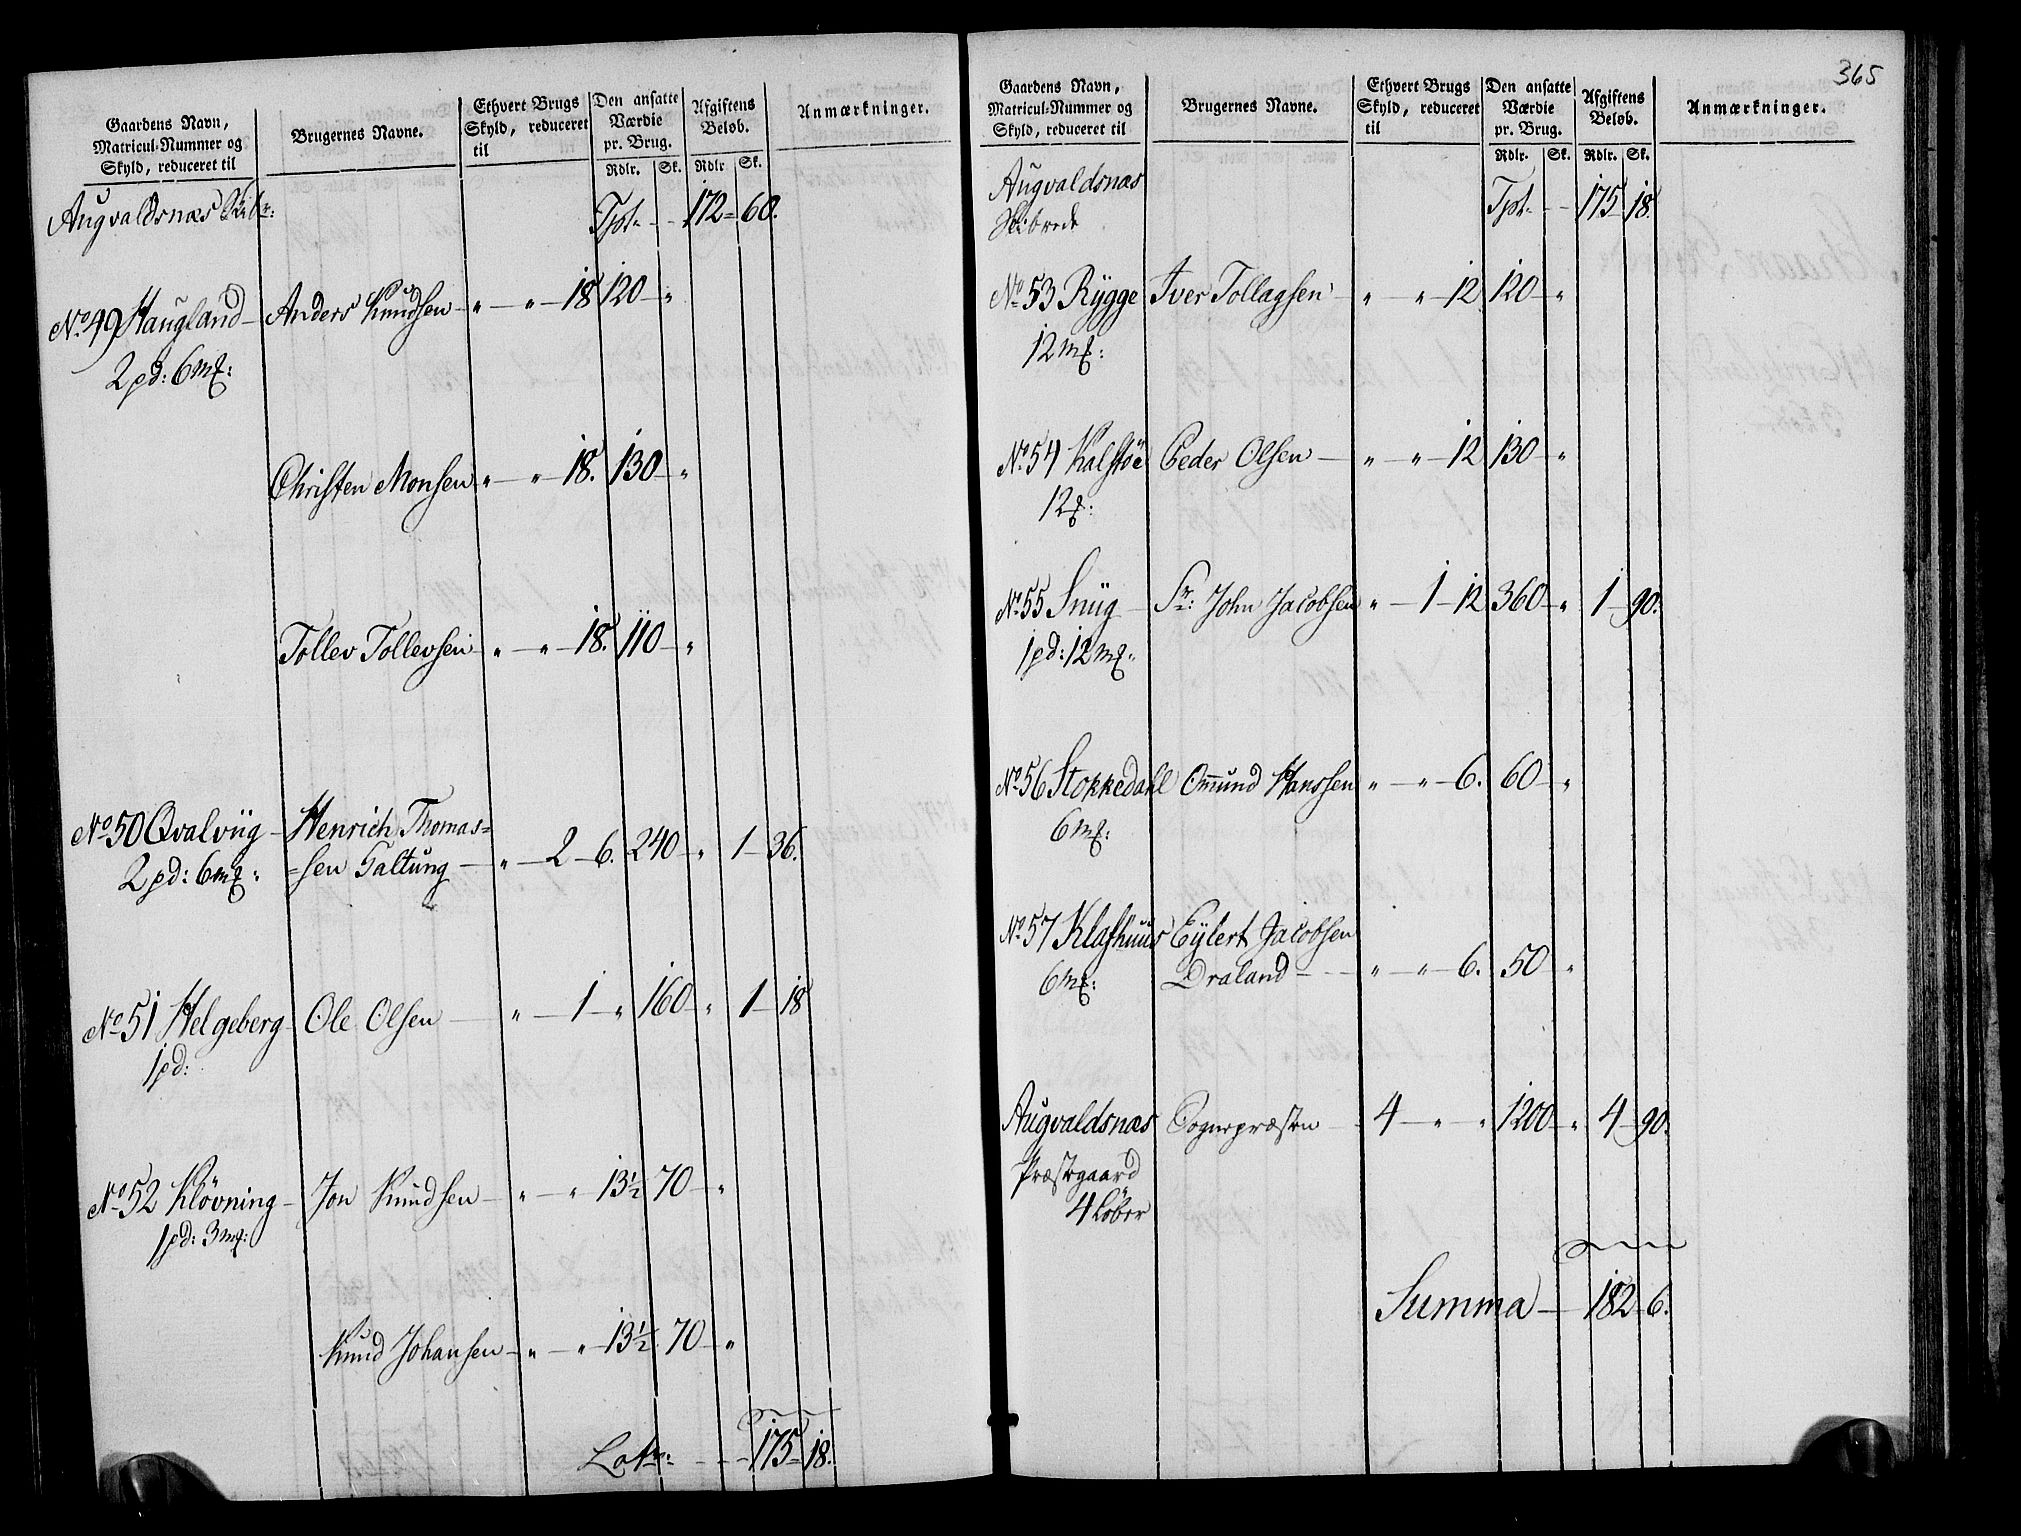 Gaardens Navn,
Matricul-Nummer og
Skyld, reduceret til
Brugernes Navne.
Ethvert Brugs
Skyld, reduceret
til
Den ansatte
Værdie
pr. Brug.
Rdlr. Sk.
Afgiftens
Beløb.
Rdlr. Sk.
Anmærkninger.
Augvaldsnæs Skibr: Tpt. 172 = 60.
No 49 Haugland Anders Knudsen " " 18 120 "
2 pd: 6 mk:
Christen Monsen " " 18. 130 "
Tollev Tollevsen " " 18. 110 "
No 50 Qvalviig Henrich Thomas=
2 pd: 6 mk: =sen Taltung " 2 6. 240 " 1 36.
No 51 Helgeberg Ole Olsen " 1 " 160 " 1 18
1 pd:
No 52 Kløvning Jon Knudsen " " 13½ 70 "
1 pd: 3 mk:
Knud Johansen " " 13½ 70 "
Latr: 175 = 18.
365
Gaardens Navn,
Matricul-Nummer og
Skyld, reduceret til
Brugernes Navne.
Ethvert Brugs
Skyld, reduceret
til
Den ansatte
Værdie
pr. Brug.
Rdlr. Sk.
Afgiftens
Beløb.
Rdlr. Sk.
Anmærkninger.
Augvaldsnæs Tpt. 175 18.
Skibrede
No 53 Rygge Iver Tollagsen " " 12 120 "
12 mk:
No 54 Kalstøe Peder Olsen " " 12 130 "
12 mk:
No 55 Snug Sr: John Jacobsen " 1 12 360 " 1 90.
1 pd: 12 mk:
No 56 Stokkedahl Omund Hanssen " " 6. 60 "
6 mk:
No 57 Klafhuus Eylert Jacobsen
6 mk: Draland " " 6. 50 "
Augvaldsnæs Sognepræsten 4 " " 1200 " 4 90.
Præstegaard
4 Løber
Summa 182 6.